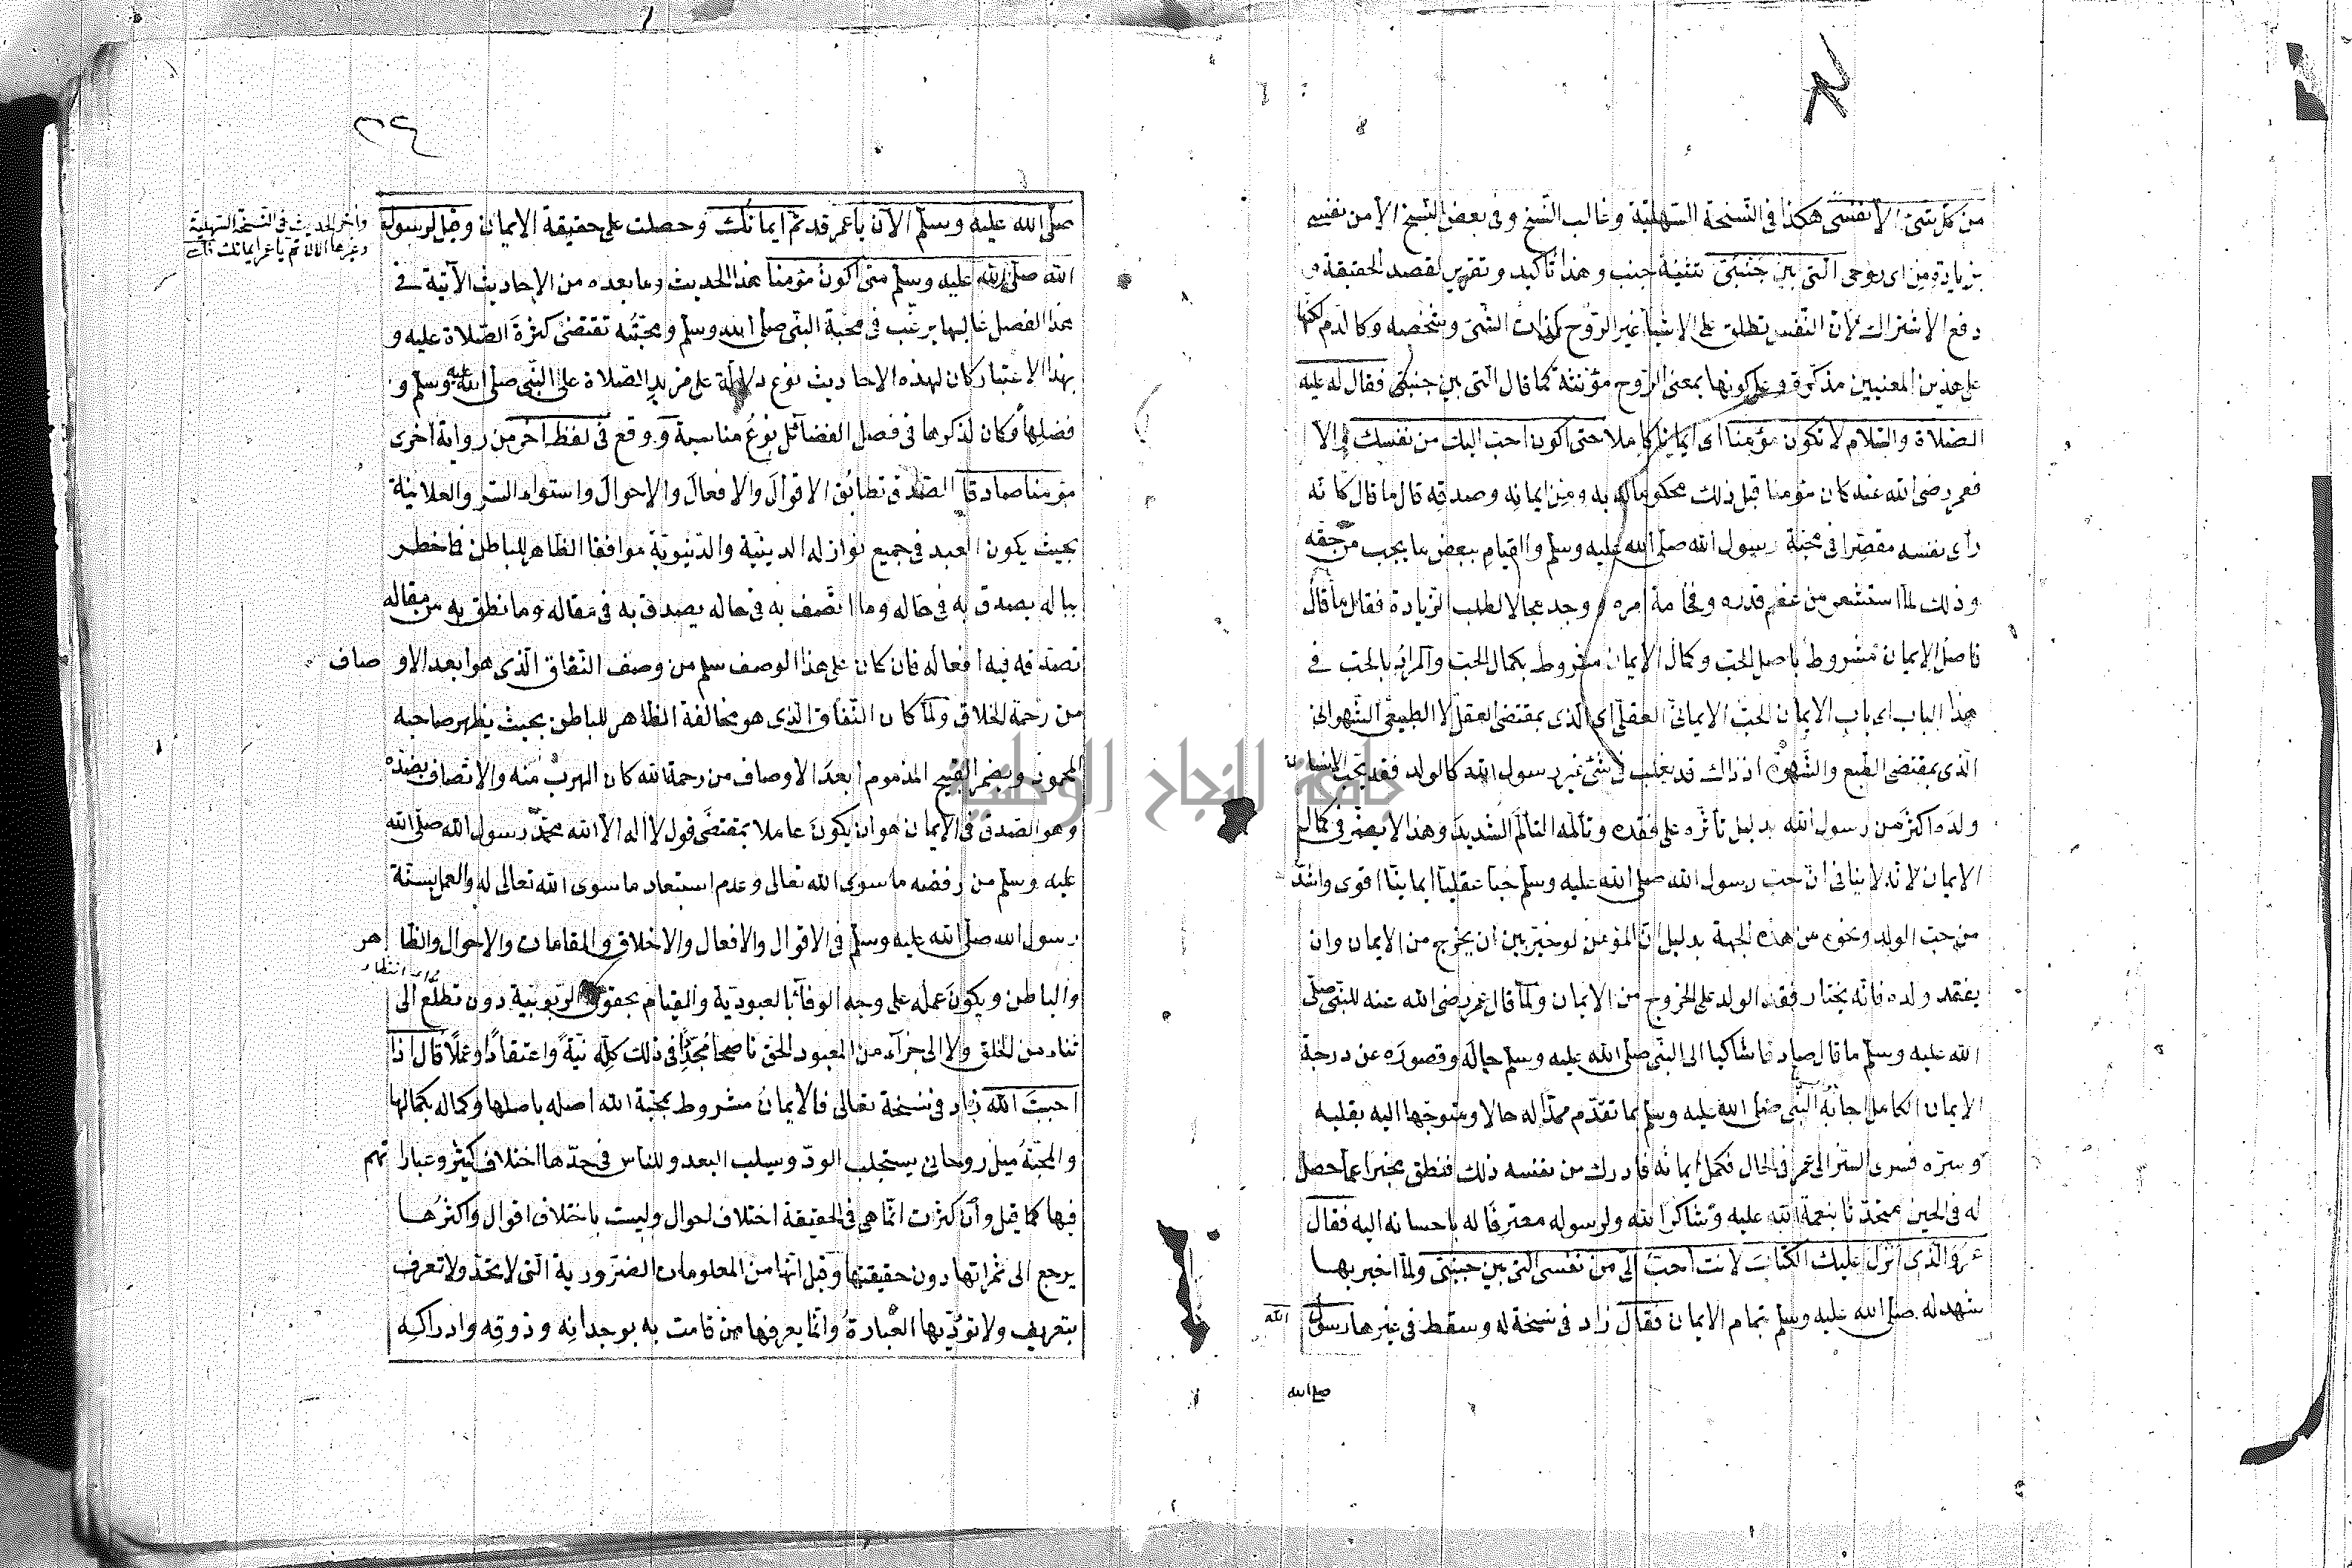 من كل شئ الا نفسى هكذا فى النسخة السهلية وغالب النسخ وفى بعض النسخ الا من نفسى
بزيادة من اى روحى التى بين جنبىّ تثنية جنب وهذا تأكيد وتقرير لقصد الحقيقة و
دفع الاشتراك لان النفس تطلق على الاشياء غير الروح كذات الشئ وشخصه وكالدم لكنها
على هذين المعنيين مذكرة وعلى كونها بمعنى الروح مؤنثة كما قال التى بين جنبىّ فقال له عليه
الصلاة والسلام لا تكون مؤمنا اى ايمانا كاملا حتى اكون احب اليك من نفسك والا
فعمر رضى الله عنه كان مؤمنا قبل ذلك محكوما له به ومن ايمانه وصدقه قال ما قال كانه
رأى نفسه مقصرا فى محبة رسول الله صلى الله عليه وسلم والقيام ببعض ما يجب من حقه
وذلك لما استشعر من عظم قدره وفخامة امره ووجد مجالا لطلب الزيادة فقال ما قال
فاصل الايمان مشروط باصل الحب وكمال الايمان مشروط بكمال الحب والمراد بالحب فى
هذا الباب اى باب الايمان الحب الايمانى العقلى اى الذى بمقتضى العقل لا الطبيعى الشهوانى
الذى بمقتضى الطبع والشهوة اذ ذاك قد يغلب فى شئ غير رسول الله كالولد فقد يحب الانسان
ولده اكثر من رسول الله بدليل تأثره على فقده وتألمه التألم الشديد وهذا لا يضر فى كمال
الايمان لانه لا ينافى ان حب رسول الله صلى الله عليه وسلم حبا عقليا ايمانيا اقوى واشد
من حب الولد ونحوه من هذه الجهة بدليل ان المؤمن لو خير بين ان يخرج من الايمان وان
يفقد ولده فانه يختار فقد الولد على الخروج من الايمان ولما قال عمر رضى الله عنه للنبى صلى
الله عليه وسلم ما قال صادقا شاكيا الى النبى صلى الله عليه وسلم حاله وقصوره عن درجة
الايمان الكامل اجابه النبى صلى الله عليه وسلم بما تقدم ممدا له حالا ومتوجها اليه بقلبه
وسره فسرى السر الى عمر فى الحال فكمل ايمانه فادرك من نفسه ذلك فنطق مخبرا عما حصل
له فى الحين متحدثا بنعمة الله عليه وشاكرا لله ولرسوله معترفا له باحسانه اليه فقال
عمر والذى انزل عليك الكتاب لانت احب الى من نفسى التى بين جنبىّ ولما اخبر بها
شهد له صلى الله عليه وسلم بتمام الايمان فقال زاد فى نسخة له وسقط فى غيرها رسول الله
صلى الله
٣٩
صلى الله عليه وسلم الآن يا عمر قد تم ايمانك وحصلت على حقيقة الايمان وقيل لرسول
الله صلى الله عليه وسلم متى اكون مؤمنا هذا الحديث وما بعده من الاحاديث الآتية فى
هذا الفصل غالبها يرغب فى محبة النبى صلى الله وسلم ومحبته تقتضى كثرة الصلاة عليه و
بهذا الاعتبار كان لهذه الاحاديث نوع دلالة على مزيد الصلاة على النبى صلى الله عليه وسلم و
فضلها وكان لذكرها فى فصل الفضائل نوع مناسبة ووقع فى لفظ آخر من رواية اخرى
مؤمنا صادقا الصدق تطابق الاقوال والافعال والاحوال واستواء السر والعلانية
بحيث يكون العبد فى جميع نوازله الدينية والدنيوية موافقا الظاهر للباطن فما خطر
بباله يصدق به فى حاله وما اتصف به فى حاله يصدق به فى مقاله وما نطق به من مقاله
تصدقه فيه افعاله فان كان على هذا الوصف سلم من وصف النفاق الذى هو ابعد الاوصاف
من رحمة الخلاق ولما كان النفاق الذى هو مخالفة الظاهر للباطن بحيث يظهر صاحبه
المحمود ويضمر القبيح المذموم ابعد الاوصاف من رحمة الله كان الهرب منه والاتصاف بضده
وهو الصدق فى الايمان هو ان يكون عاملا بمقتضى قول لا اله الا الله محمد رسول الله صلى الله
عليه وسلم من رفضه ما سوى الله تعالى وعدم استبعاد ما سوى الله تعالى له والعمل بسنة
رسول الله صلى الله عليه وسلم فى الاقوال والافعال والاخلاق والمقامات والاحوال والظاهر
والباطن ويكون عمله على وجه الوفاء بالعبودية والقيام بحقوق الربوبية دون تطلع الى
ثناء من الخلق ولا الى جزآء من المعبود الحق ناصحا مجدا فى ذلك كله نية واعتقادا وعملا قال اذا
احببت الله زاد فى نسخة تعالى فالايمان مشروط بمحبة الله اصله باصلها وكماله بكمالها
والمحبة ميل روحانى يستجلب الود ويسلب البعد وللناس فى حدها اختلاف كثير وعباراتهم
فيها كما قيل وان كثرت انما هى فى الحقيقة اختلاف احوال وليست باختلاف اقوال واكثرها
يرجع الى ثمراتها دون حقيقتها وقيل انها من المعلومات الضرورية التى لا تحد ولا تعرف
بتعريف ولا تؤديها العبارة وانما يعرفها من قامت به بوجدانه وذوقه وادراكه
وآخر الحديث فى النسخة السهلية
وغيرها الآن تم يا عمر ايمانك
جامعة النجاح الوطنية